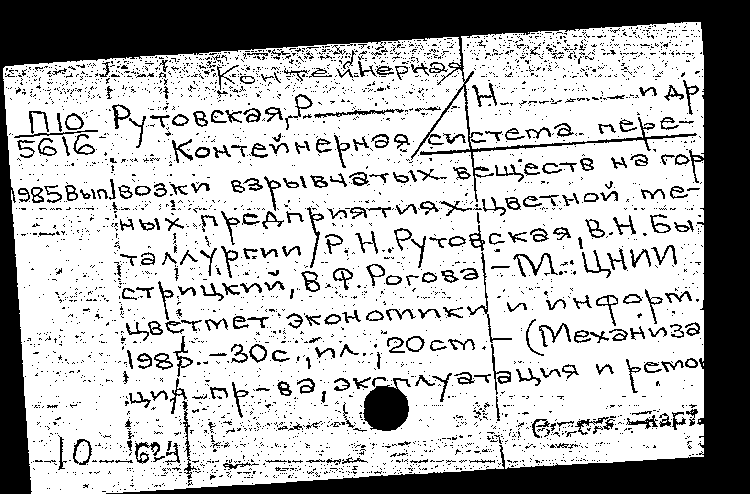 Контейнерная
П10 Рутовская, Р. Н. и др.
5616 Контейнерная система пере-
1985 Вып. возки взрывчатых веществ на гор
ных предприятиях цветной ме-
таллургии / Р.Н. Рутовская, В.Н. Бы-
стрицкий, В.Ф. Рогова. - М.: ЦНИИ
цветмет экономики и информ.,
1985. - 30с., ил.; 20см. - (Механиза
ция пр-ва, эксплуатация и ремо
карт.
10 624